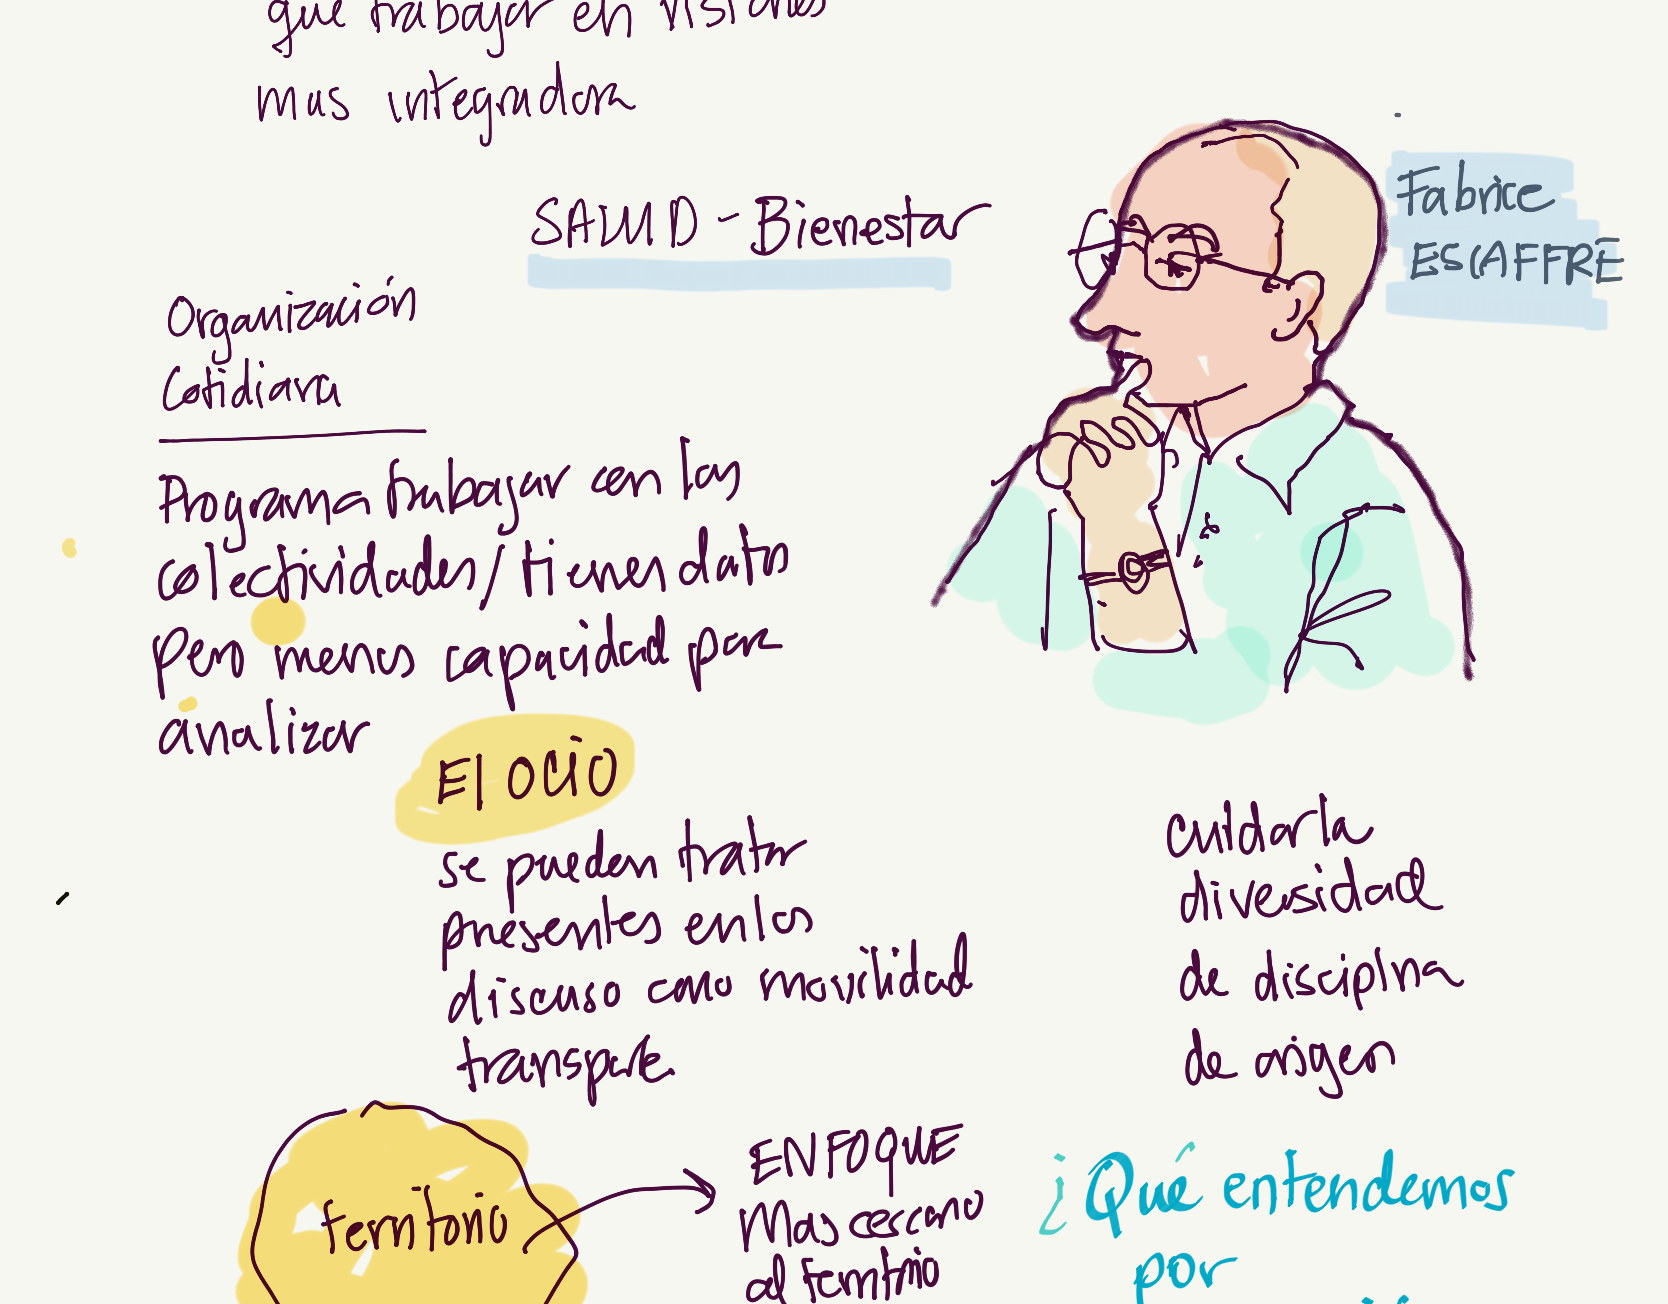 que trabajar en visiones
mas integradora
SALUD - Bienestar
Fabrice
ESCAFFRE
Organización
Cotidiana
Programa trabajar con las
colectividades / tienen datos
pero menos capacidad para
analizar
El OCIO
se pueden tratar
presentes en los
discuso como movilidad
transporte
cuidar la
diversidad
de disciplna
de origen
territorio
ENFOQUE
Mas cercano
al territorio
¿Qué entendemos
por